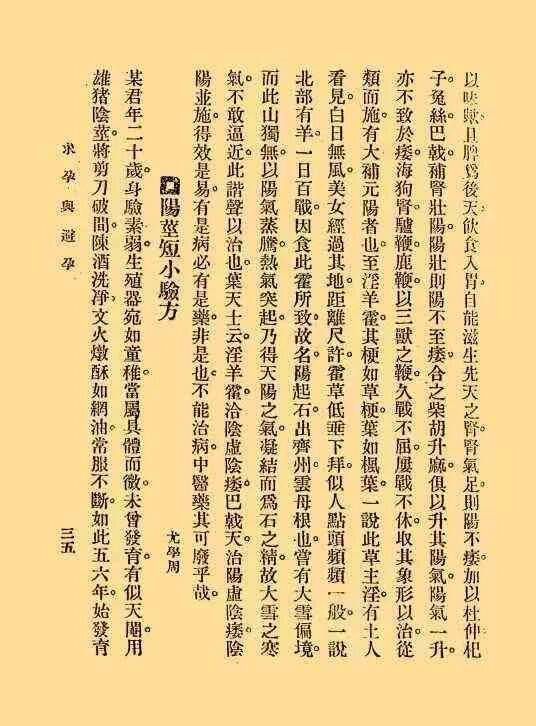 以味鹹且脾爲後天飲食入胃自能滋生先天之腎腎氣足則陽不痿。加以杜仲杞
子。兔絲。巴戟。補腎壯陽。陽壯則陽不至痿。合之柴胡升麻。俱以升其陽氣。陽氣一升。
亦不致於痿。海狗腎。驢鞭鹿鞭。以三獸之鞭。久戰不屈。屢戰不休。取其象形以治。從
類而施。有大補元陽者也。至淫羊霍。其梗如草梗。葉如楓葉。一說此草主淫。有土人
看見白日無風。美女經過其地。距離尺許。霍草低垂下拜。似人點頭頻頻一般。一說
北部有羊。一日百戰。因食此霍所致。故名。陽起石出齊州雲母根也。嘗有大雪偏境。
而此山獨無。以陽氣蒸騰。熱氣突起。乃得天陽之氣。凝結而爲石之精。故大雪之寒
氣。不敢逼近。此諧聲以治也。葉天士云。淫羊霍治陰虛陰痿。巴戟天治陽虛陰痿。陰
陽並施。得效是易。有是病必有是藥。非是也。不能治病。中醫藥其可廢乎哉。
陽莖短小驗方
尤學周
某君年二十歲。身驗素弱。生殖器宛如童稚。當屬具體而微。未曾發育。有似天閹。用
雄猪陰莖。將剪刀破開。陳酒洗凈。文火燉酥如網油。常服不斷。如此五六年。始發育
求孕與避孕
三五